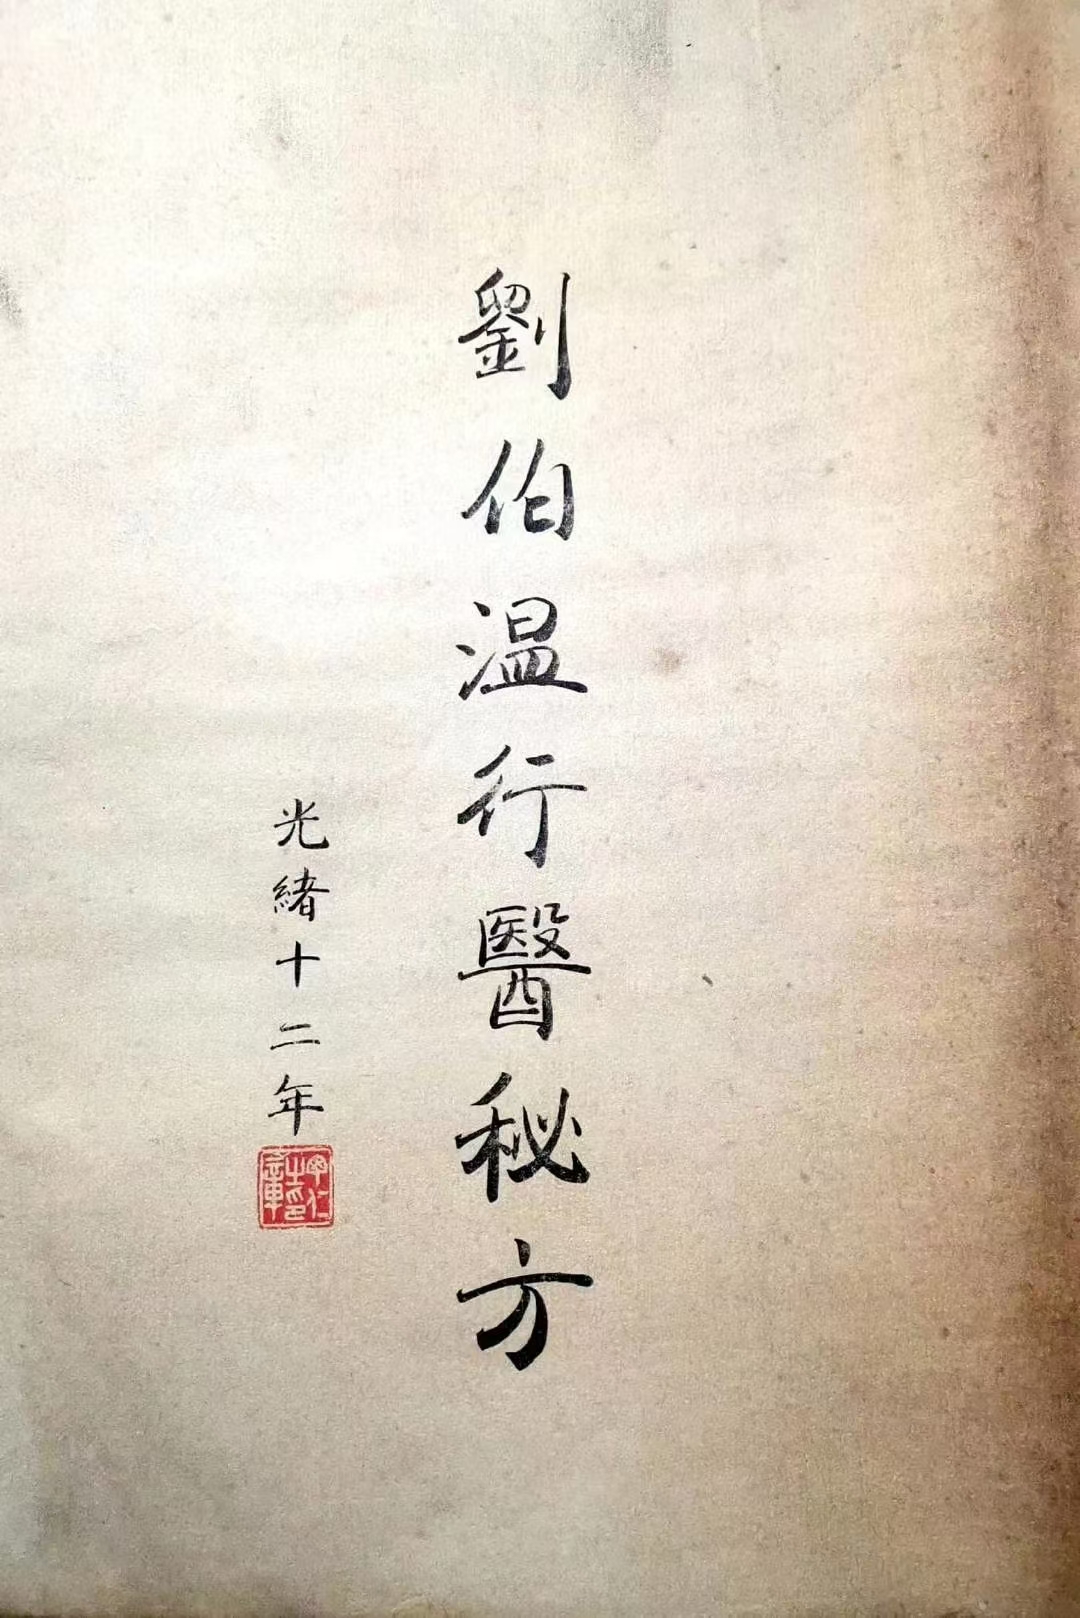 劉伯温行醫秘方
光緒十二年